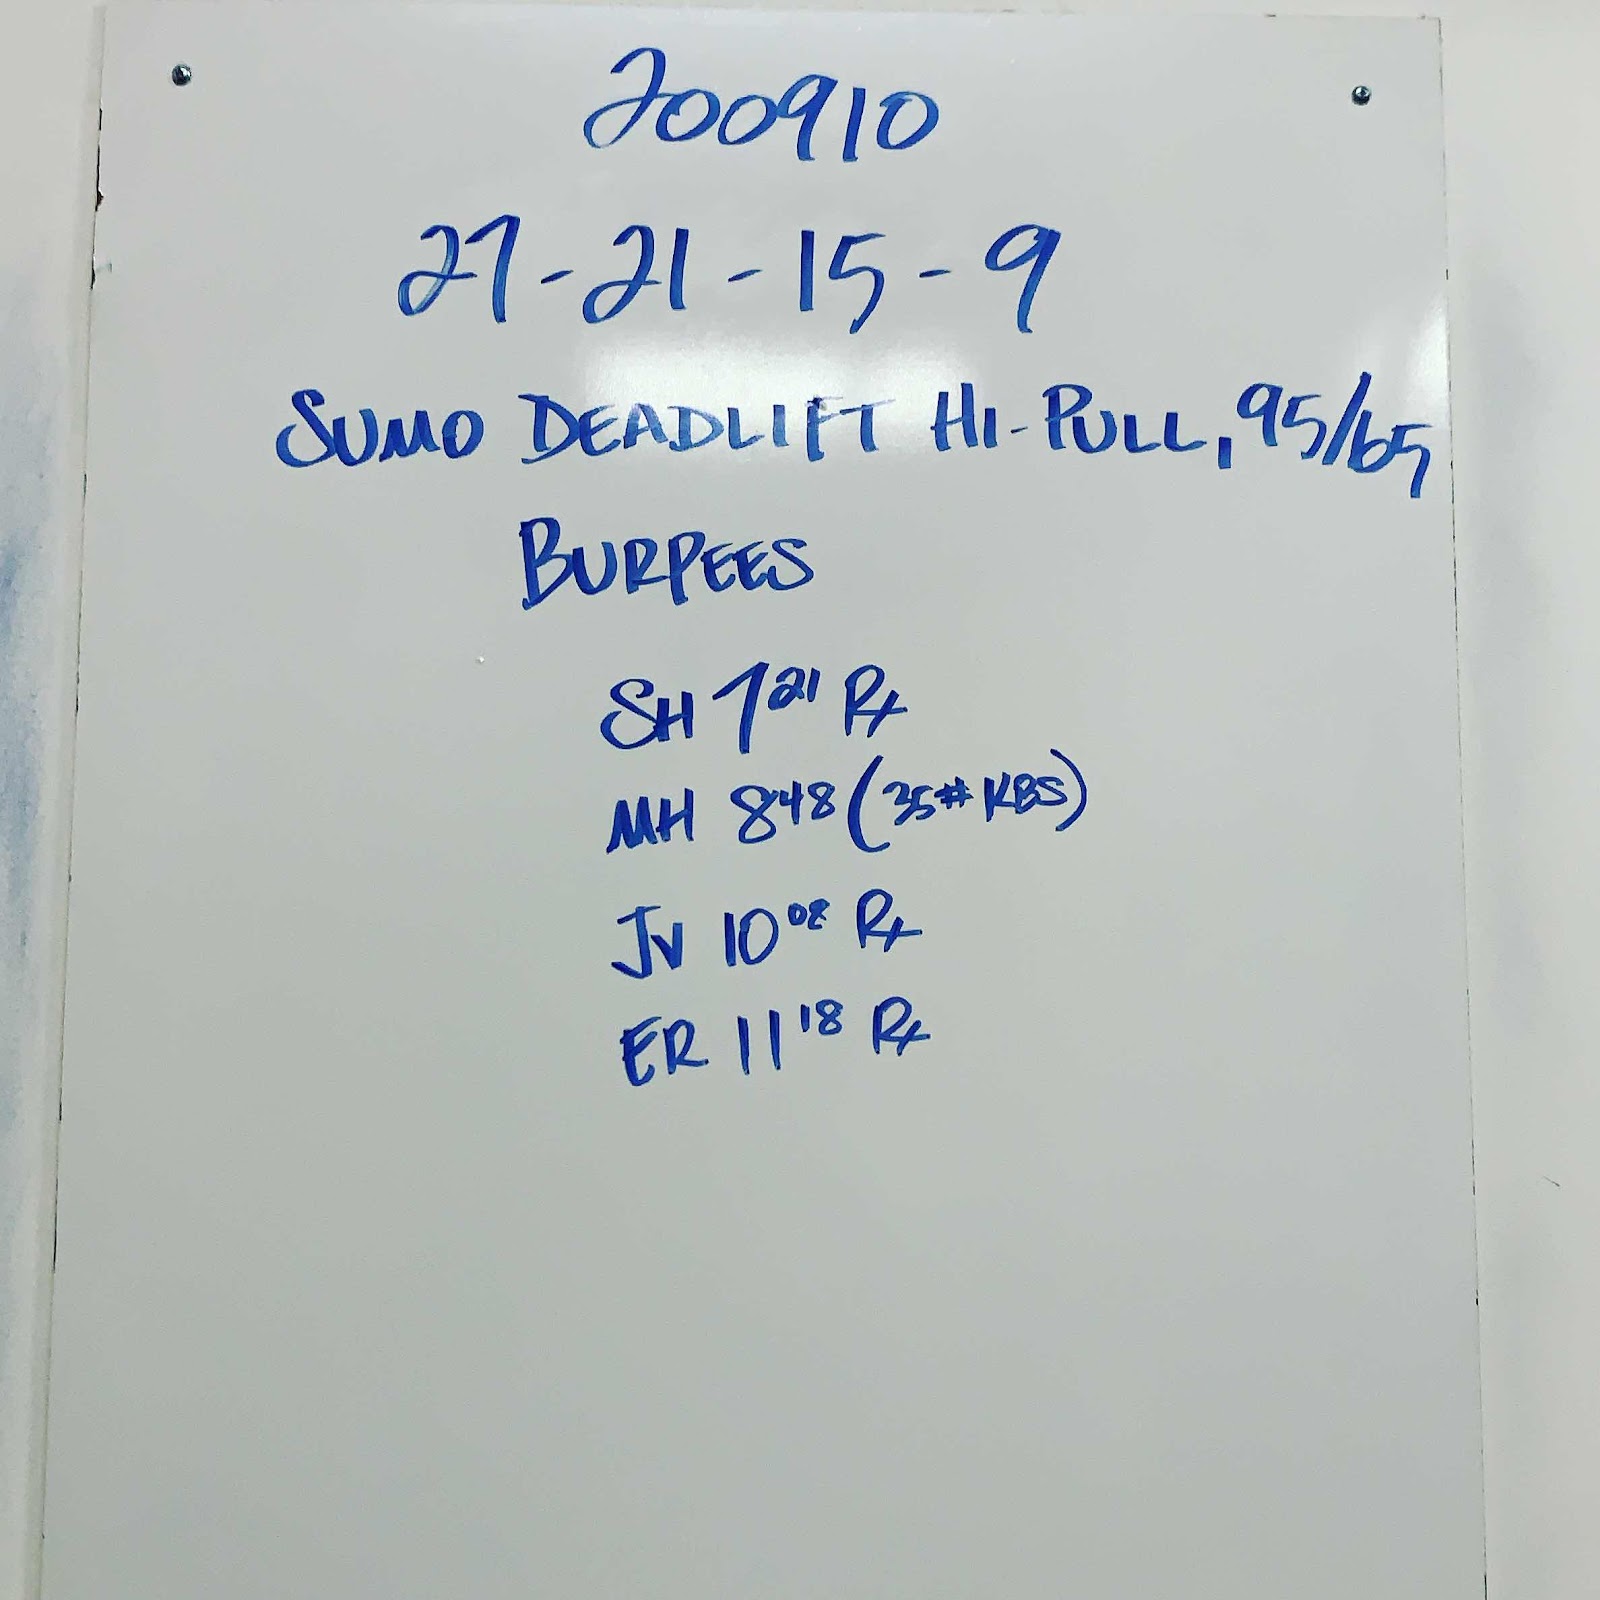 200910
27-21-15-9
SUMO DEADLIFT HI-PULL, 95/65
BURPEES
SH 7 21 Rx
MH 8 48 (35# KBS)
JV 10 08 Rx
ER 11 18 Rx